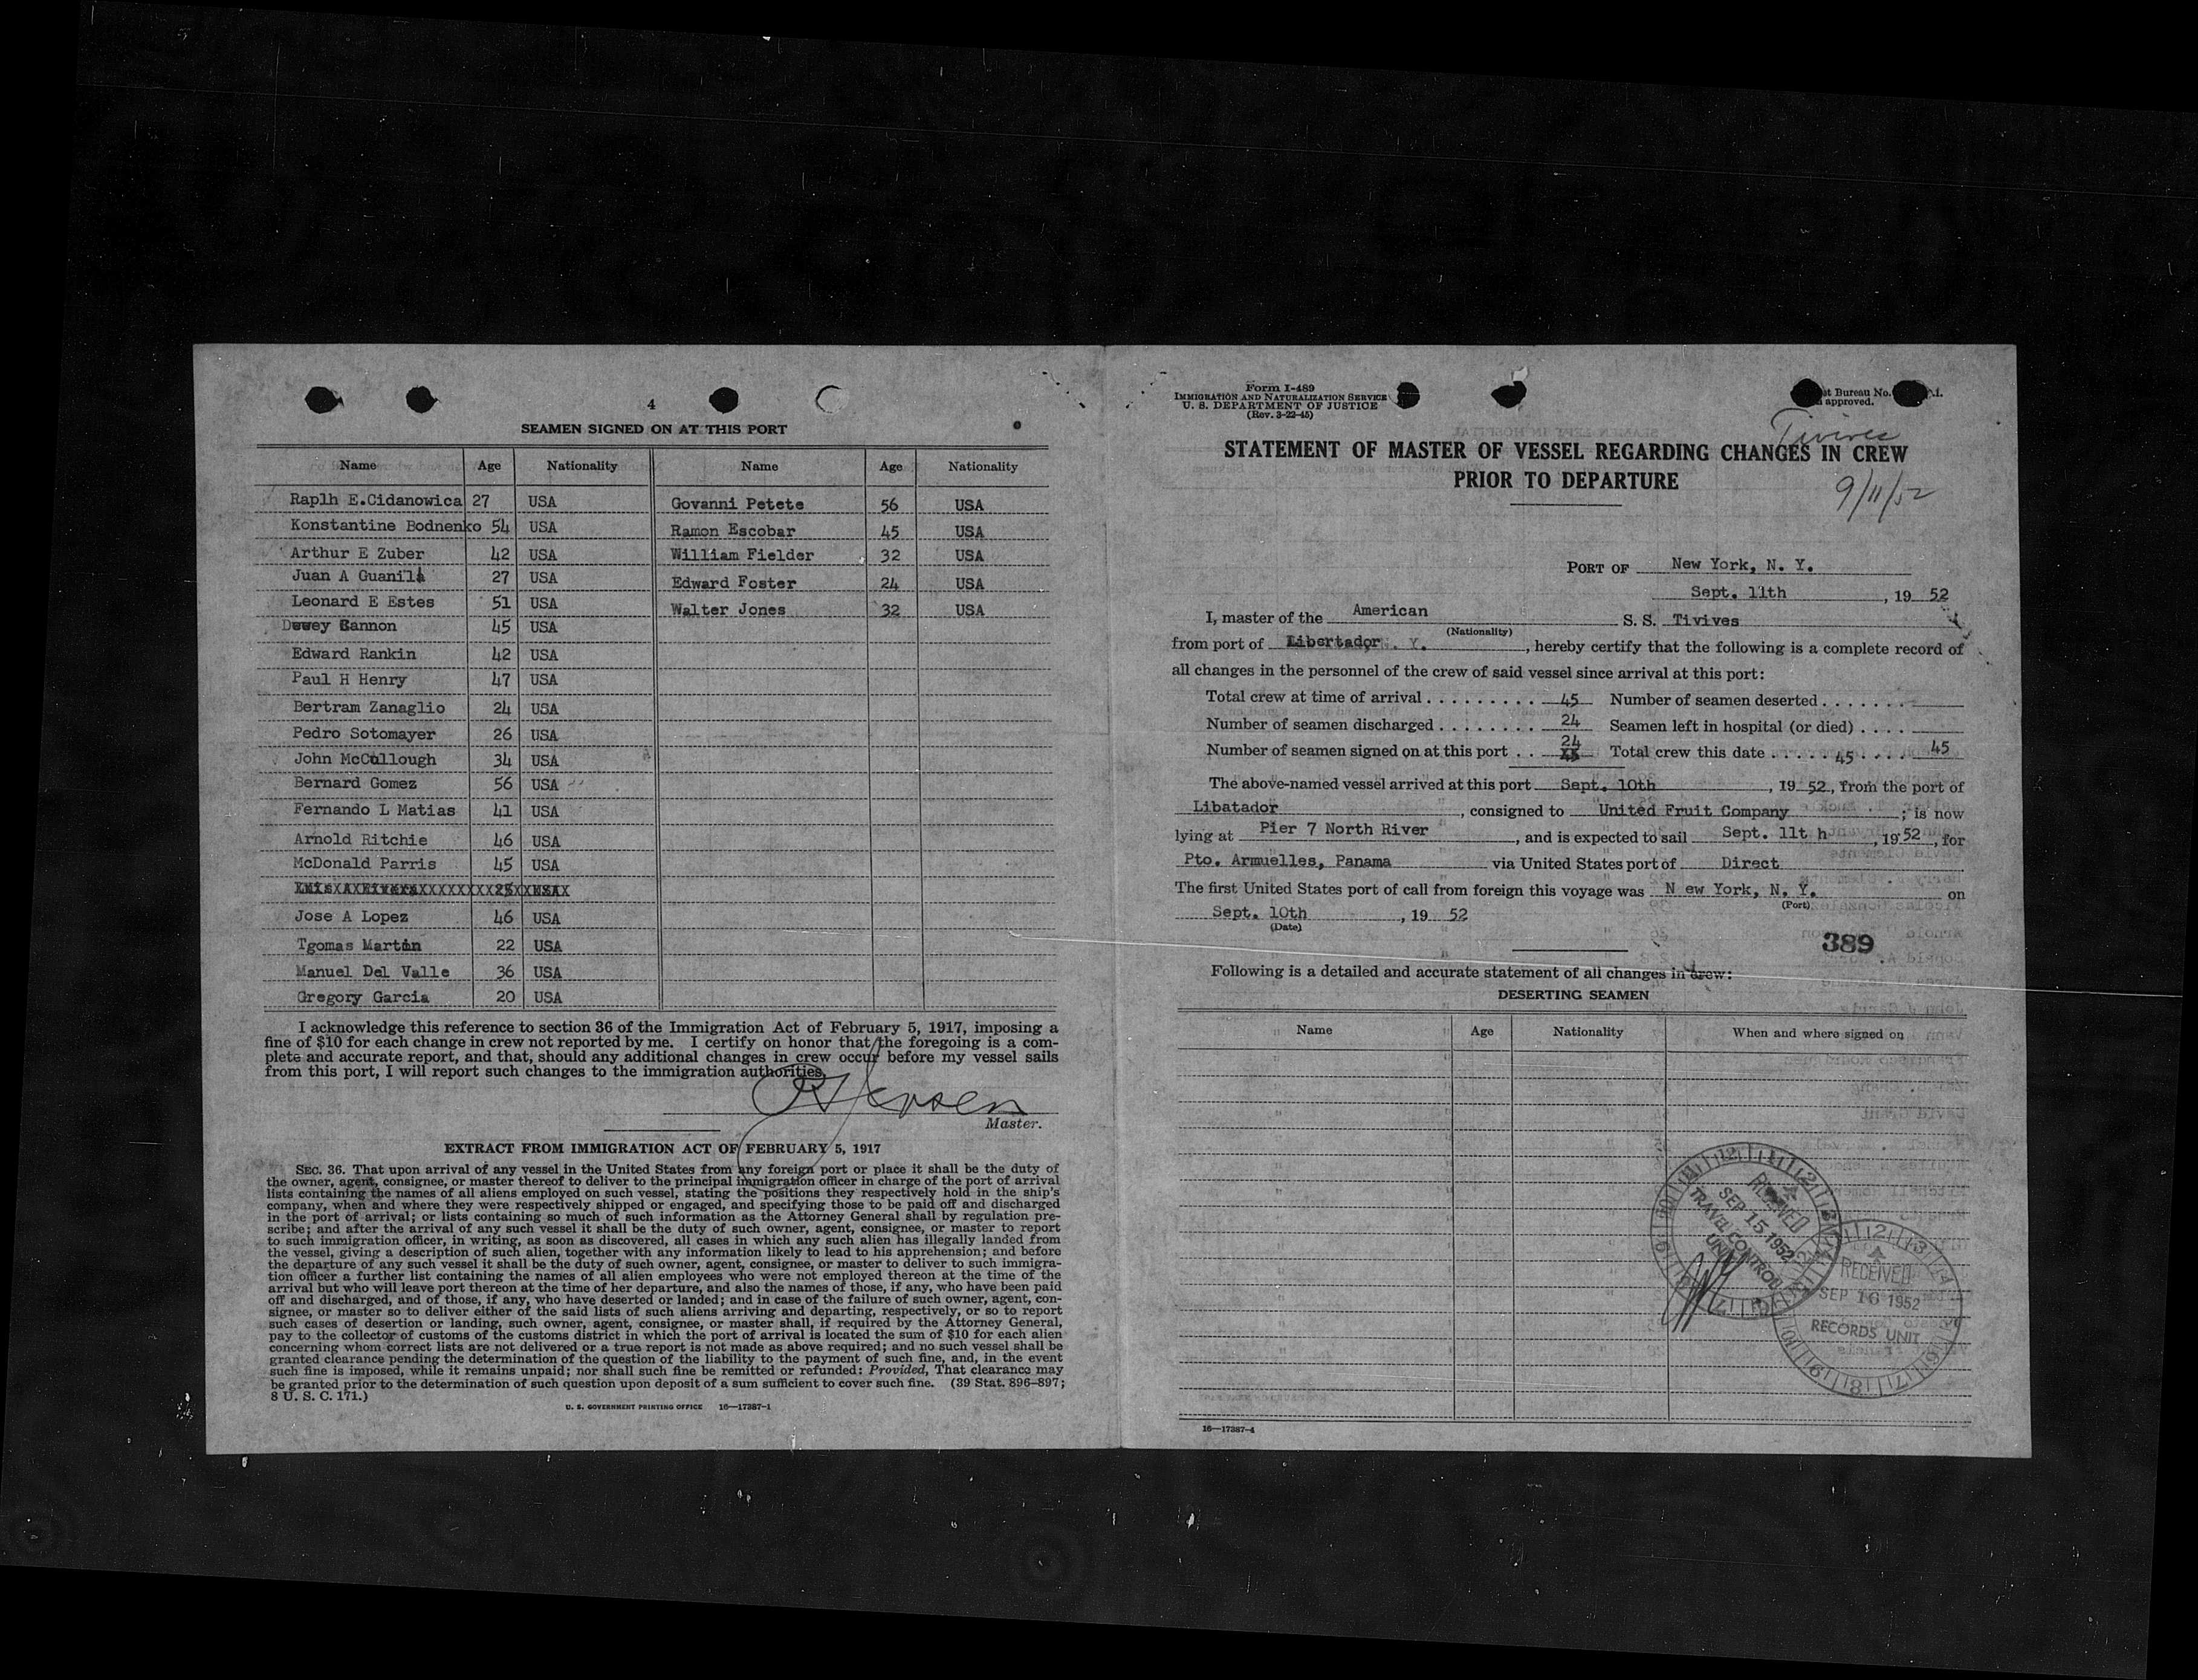 4
SEAMEN SIGNED ON AT THIS PORT
Name Age Nationality Name Age Nationality
Raplh E.Cidanowica 27 USA Govanni Petete 56 USA
Konstantine Bodnenko 54 USA Ramon Escobar 45 USA
Arthur E Zuber 42 USA William Fielder 32 USA
Juan A Guanila 27 USA Edward Foster 24 USA
Leonard E Estes 51 USA Walter Jones 32 USA
Dewey Cannon 45 USA
Edward Rankin 42 USA
Paul H Henry 47 USA
Bertram Zanaglio 24 USA
Pedro Sotomayer 26 USA
John McCullough 34 USA
Bernard Gomez 56 USA
Fernando L Matias 41 USA
Arnold Ritchie 46 USA
McDonald Parris 45 USA
Jose A Lopez 46 USA
Tgomas Martin 22 USA
Manuel Del Valle 36 USA
Gregory Garcia 20 USA
I acknowledge this reference to section 36 of the Immigration Act of February 5, 1917, imposing a
fine of $10 for each change in crew not reported by me. I certify on honor that the foregoing is a com-
plete and accurate report, and that, should any additional changes in crew occur before my vessel sails
from this port, I will report such changes to the immigration authorities.
Master.
EXTRACT FROM IMMIGRATION ACT OF FEBRUARY 5, 1917
SEC. 36. That upon arrival of any vessel in the United States from any foreign port or place it shall be the duty of
the owner, agent, consignee, or master thereof to deliver to the principal immigration officer in charge of the port of arrival
lists containing the names of all aliens employed on such vessel, stating the positions they respectively hold in the ship's
company, when and where they were respectively shipped or engaged, and specifying those to be paid off and discharged
in the port of arrival; or lists containing so much of such information as the Attorney General shall by regulation pre-
scribe; and after the arrival of any such vessel it shall be the duty of such owner, agent, consignee, or master to report
to such immigration officer, in writing, as soon as discovered, all cases in which any such alien has illegally landed from
the vessel, giving a description of such alien, together with any information likely to lead to his apprehension; and before
the departure of any such vessel it shall be the duty of such owner, agent, consignee, or master to deliver to such immigra-
tion officer a further list containing the names of all alien employees who were not employed thereon at the time of the
arrival but who will leave port thereon at the time of her departure, and also the names of those, if any, who have been paid
off and discharged, and of those, if any, who have deserted or landed; and in case of the failure of such owner, agent, con-
signee, or master so to deliver either of the said lists of such aliens arriving and departing, respectively, or so to report
such cases of desertion or landing, such owner, agent, consignee, or master shall, if required by the Attorney General,
pay to the collector of customs of the customs district in which the port of arrival is located the sum of $10 for each alien
concerning whom correct lists are not delivered or a true report is not made as above required; and no such vessel shall be
granted clearance pending the determination of the question of the liability to the payment of such fine, and, in the event
such fine is imposed, while it remains unpaid; nor shall such fine be remitted or refunded: Provided, That clearance may
be granted prior to the determination of such question upon deposit of a sum sufficient to cover such fine. (39 Stat. 896–897;
8 U. S. C. 171.)
U. S. GOVERNMENT PRINTING OFFICE 16—17387-1
Form I-489
IMMIGRATION AND NATURALIZATION SERVICE
U. S. DEPARTMENT OF JUSTICE
(Rev. 3-22-45)
Bureau No.
approved.
Tivives
STATEMENT OF MASTER OF VESSEL REGARDING CHANGES IN CREW
PRIOR TO DEPARTURE
9/11/52
PORT OF New York, N. Y.
Sept. 11th, 19 52
I, master of the American S. S. Tivives
(Nationality)
from port of Libertador, hereby certify that the following is a complete record of
all changes in the personnel of the crew of said vessel since arrival at this port:
Total crew at time of arrival . . . . . . . . . . 45 Number of seamen deserted . . . . . . .
Number of seamen discharged . . . . . . . . 24 Seamen left in hospital (or died) . . . .
Number of seamen signed on at this port . . 24 Total crew this date . . . . . 45 . . . . 45
The above-named vessel arrived at this port Sept. 10th, 19 52, from the port of
Libatador, consigned to United Fruit Company; is now
lying at Pier 7 North River, and is expected to sail Sept. 11t h, 19 52, for
Pto. Armuelles, Panama via United States port of Direct
The first United States port of call from foreign this voyage was N ew York, N. Y. on
(Port)
Sept. 10th, 19 52
(Date)
389
Following is a detailed and accurate statement of all changes in crew:
DESERTING SEAMEN
Name Age Nationality When and where signed on
RECEIVED
SEP 15 1952
TRAVEL CONTROL
UNIT
RECEIVED
SEP 16 1952
RECORDS UNIT
16—17387-4